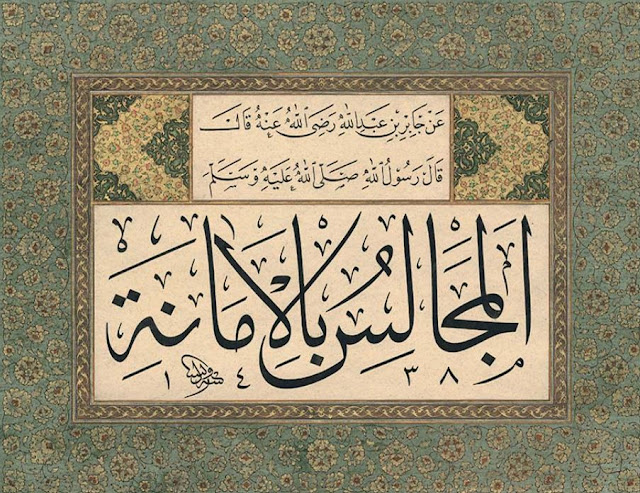 عَنْ جَابِرِ بْنِ عَبْدِ اللهِ رَضِيَ اللهُ عَنْهُ قَالَ
قَالَ رَسُولُ اللهِ صَلَّى اللهُ عَلَيْهِ وَسَلَّمَ
اَلْمَجَالِسُ بِالْاَمَانَةِ
١٤٣٨